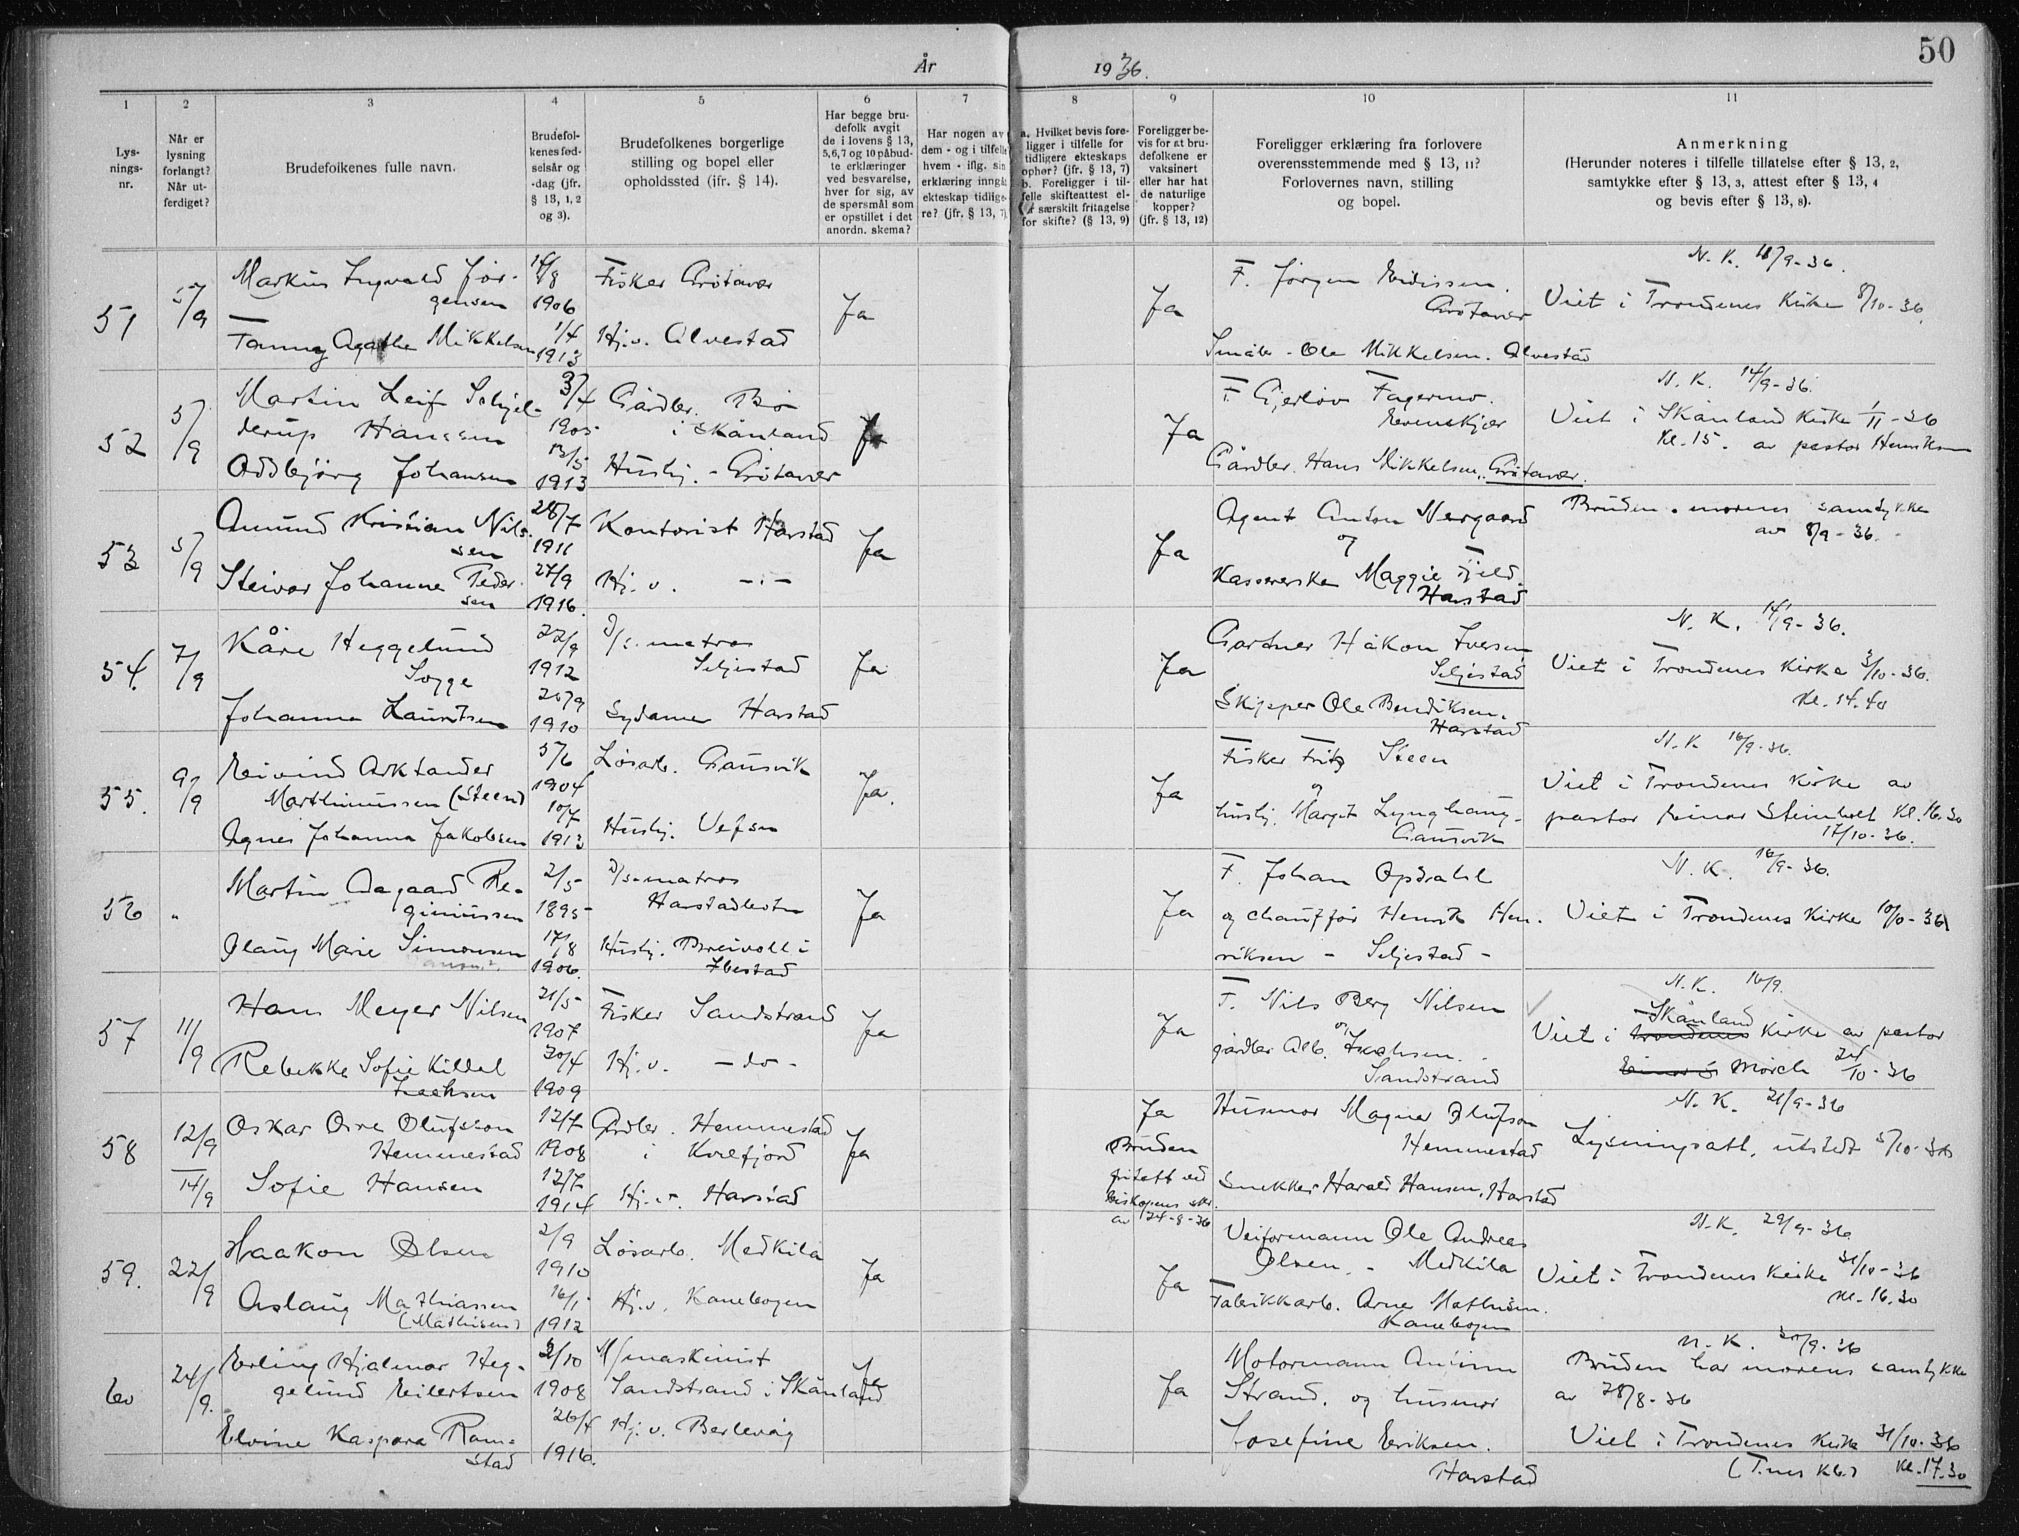 År 1936.
50
1 2 3 4 5 6 7 8 9 10 11
Lys-
nings-
nr.
Når er
lysning
forlangt?
Når ut-
ferdiget?
Brudefolkenes fulle navn.
Brudefol-
kenes fød-
selsår og
-dag (jfr.
§ 13, 1, 2
og 3).
Brudefolkenes borgerlige
stilling og bopel eller
opholdssted (jfr. § 14).
Har begge bru-
defolk avgit
de i lovens § 13,
5,6,7 og 10 påbud-
te erklæringer
ved besvarelse,
hver for sig, av
de spørsmål som
er opstillet i det
anordn. skema?
Har nogen av
dem - og i tilfelle
hvem - iflg. sin
erklæring inngåt
ekteskap tidlige-
re? (jfr. § 13, 7)
a. Hvilket bevis fore-
ligger i tilfelle for
tidligere ekteskaps
ophør? (jfr. § 13, 7)
b. Foreligger i til-
felle skifteattest el-
særskilt fritagelse
for skifte? (§ 13, 9)
Foreligger be-
vis for at bru-
defolkene er
vaksinert
eller har hat
de naturlige
kopper?
(jfr. § 13, 12)
Foreligger erklæring fra forlovere
overensstemmende med § 13, 11?
Forlovernes navn, stilling
og bopel.
Anmerkning
(Herunder noteres i tilfelle tillatelse efter § 13, 2,
samtykke efter § 13, 3, attest efter § 13, 4
og bevis efter § 13, 8).
51
5/9
Markus Ingvald Jør-
gensen
1906
Fisker Grøtavær
Fanny Agathe Mikkelsen
1/4
1913
Hj.v. Alvestad
Ja
Ja
F. Jørgen
Grøtavær
Småbr. Ole Mikkelsen. Alvestad
N. K. 18/9-36.
Viet i Trondenes Kirke 8/10-36.
52
5/9
Martin Leif Schjel-
derup Hanssen
3/4
1905
Gårdbr. Bø
i Skånland
Oddbjørg Johansen
13/5
1913
Hushj. - Grøtavær
Ja
Ja
F. Gjerløv Fagermo.
Evenskjær
Gårdbr. Hans Mikkelsen, Grøtavær.
N. K. 14/9-36.
Viet i Skånland Kirke 1/11-36
Kl. 15. av pastor Henriksen
53
5/9
Amund Kristian Nil-
sen
28/7
1911
Kontorist Harstad
Steivor Johanne Peder-
sen
27/9
1916.
Hj. v. -"-
Ja
Ja
Agent Anton Nergaard
og
Kassererske Maggie Fjeld
Harstad
Bruden morens samtykke
av 8/9-36.
54.
7/9
Kåre Heggelund
Sogge
22/9
1912
D/s. matros
Seljestad
Johanna Lauritsen
20/9
1910
Sydame Harstad
Ja
Ja
Gartner Håkon Iversen
Seljestad
Skipper Ole Bendiksen.
Harstad
N. K. 14/9-36.
Viet i Trondenes Kirke 3/10-36.
Kl. 14.40
55.
9/9
Eivind Arktander
Marthinussen (Steen)
5/6
1904
Løsarb. Gausvik
Agnes Johanna Jakobsen
10/7
1913
Hushj. Vefsn
Ja.
Ja
Fisker Fritz Steen
og
hushj. Margit Lynghaug-
Gausvik
N. K. 16/9-36.
Viet i Trondenes Kirke av
pastor Einar Steinholt Kl. 16.30
17/10-36.
56
"
Martin Aagaard Re-
ginussen
2/5
1895
D/s-matros
Harstadbotn
Olaug Marie Simonsen
17/8
1906.
Hushj. Breivoll i
Ibestad
Ja
Ja
F. Johan Opdahl
og chauffør Henrik Hen-
riksen - Seljestad -
N. K. 16/9-36.
Viet i Trondenes Kirke 10/10-36
57
11/9
Hans Meyer Nilsen
21/5
1907
Fisker Sandstrand
Rebekke Sofie Kildal
Isachsen
30/4
1909
Hj. v. - do -
Ja
Ja
F. Nils Berg Nilsen
og
gårdbr. Alb. Isachsen.
Sandstrand
N. K. 16/9.
Skånland
Viet i Trondenes Kirke av pastor
Mørch 24/10-36
58
12/9
14/9
Oskar Arne Olufsson
Hemmestad
12/7
1908
Gårdbr. Hemmestad
i Kvæfjord
Sofie Hansen
12/7
1914
Hj. v. Harstad
Ja
Ja
Bruden
fritatt ved
Biskopens skr.
av 24-8-36
Husmor Magna Olufson
Hemmestad
Snekker Harald Hansen, Harstad
N. K. 21/9-36
Lysningsatt. utstedt 5/10-36
59.
22/9
Haakon Olsen
2/9
1910
Løsarb. Medkila
Aslaug Mathiassen
(Mathisen)
16/1
1912
Hj. v. Kanebogen
Ja
Ja
Veiformann Ole Andreas
Olsen. - Medkila
Fabrikkarb. Arne Mathisen.
Kanebogen
N. K. 29/9-36
Viet i Trondenes Kirke 31/10-36
Kl. 16.30
60
24/9.
Erling Hjalmar Heg-
gelund Eilertsen
3/10
1908
M/maskinist
Sandstrand i Skånland
Elvine Kaspara Ram-
stad
26/4
1916.
Hj. v. Berlevåg
Ja
Ja
Motormann
Strand. og husmor
Josefine Eriksen.
Harstad
N. K. 30/9-36
Bruden har morens samtykke
av 28/8-36
Viet i Trondenes Kirke 31/10-36
(T.nes kb.) Kl. 17.30